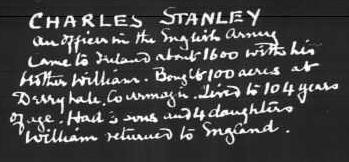 CHARLES STANLEY
an officer in the English Army
came to Ireland about 1600 with his
brother William. Bought 100 acres at
Derryhale, Co Armagh. Lived to 104 years
of age. Had 3 sons and 4 daughters
William returned to England.